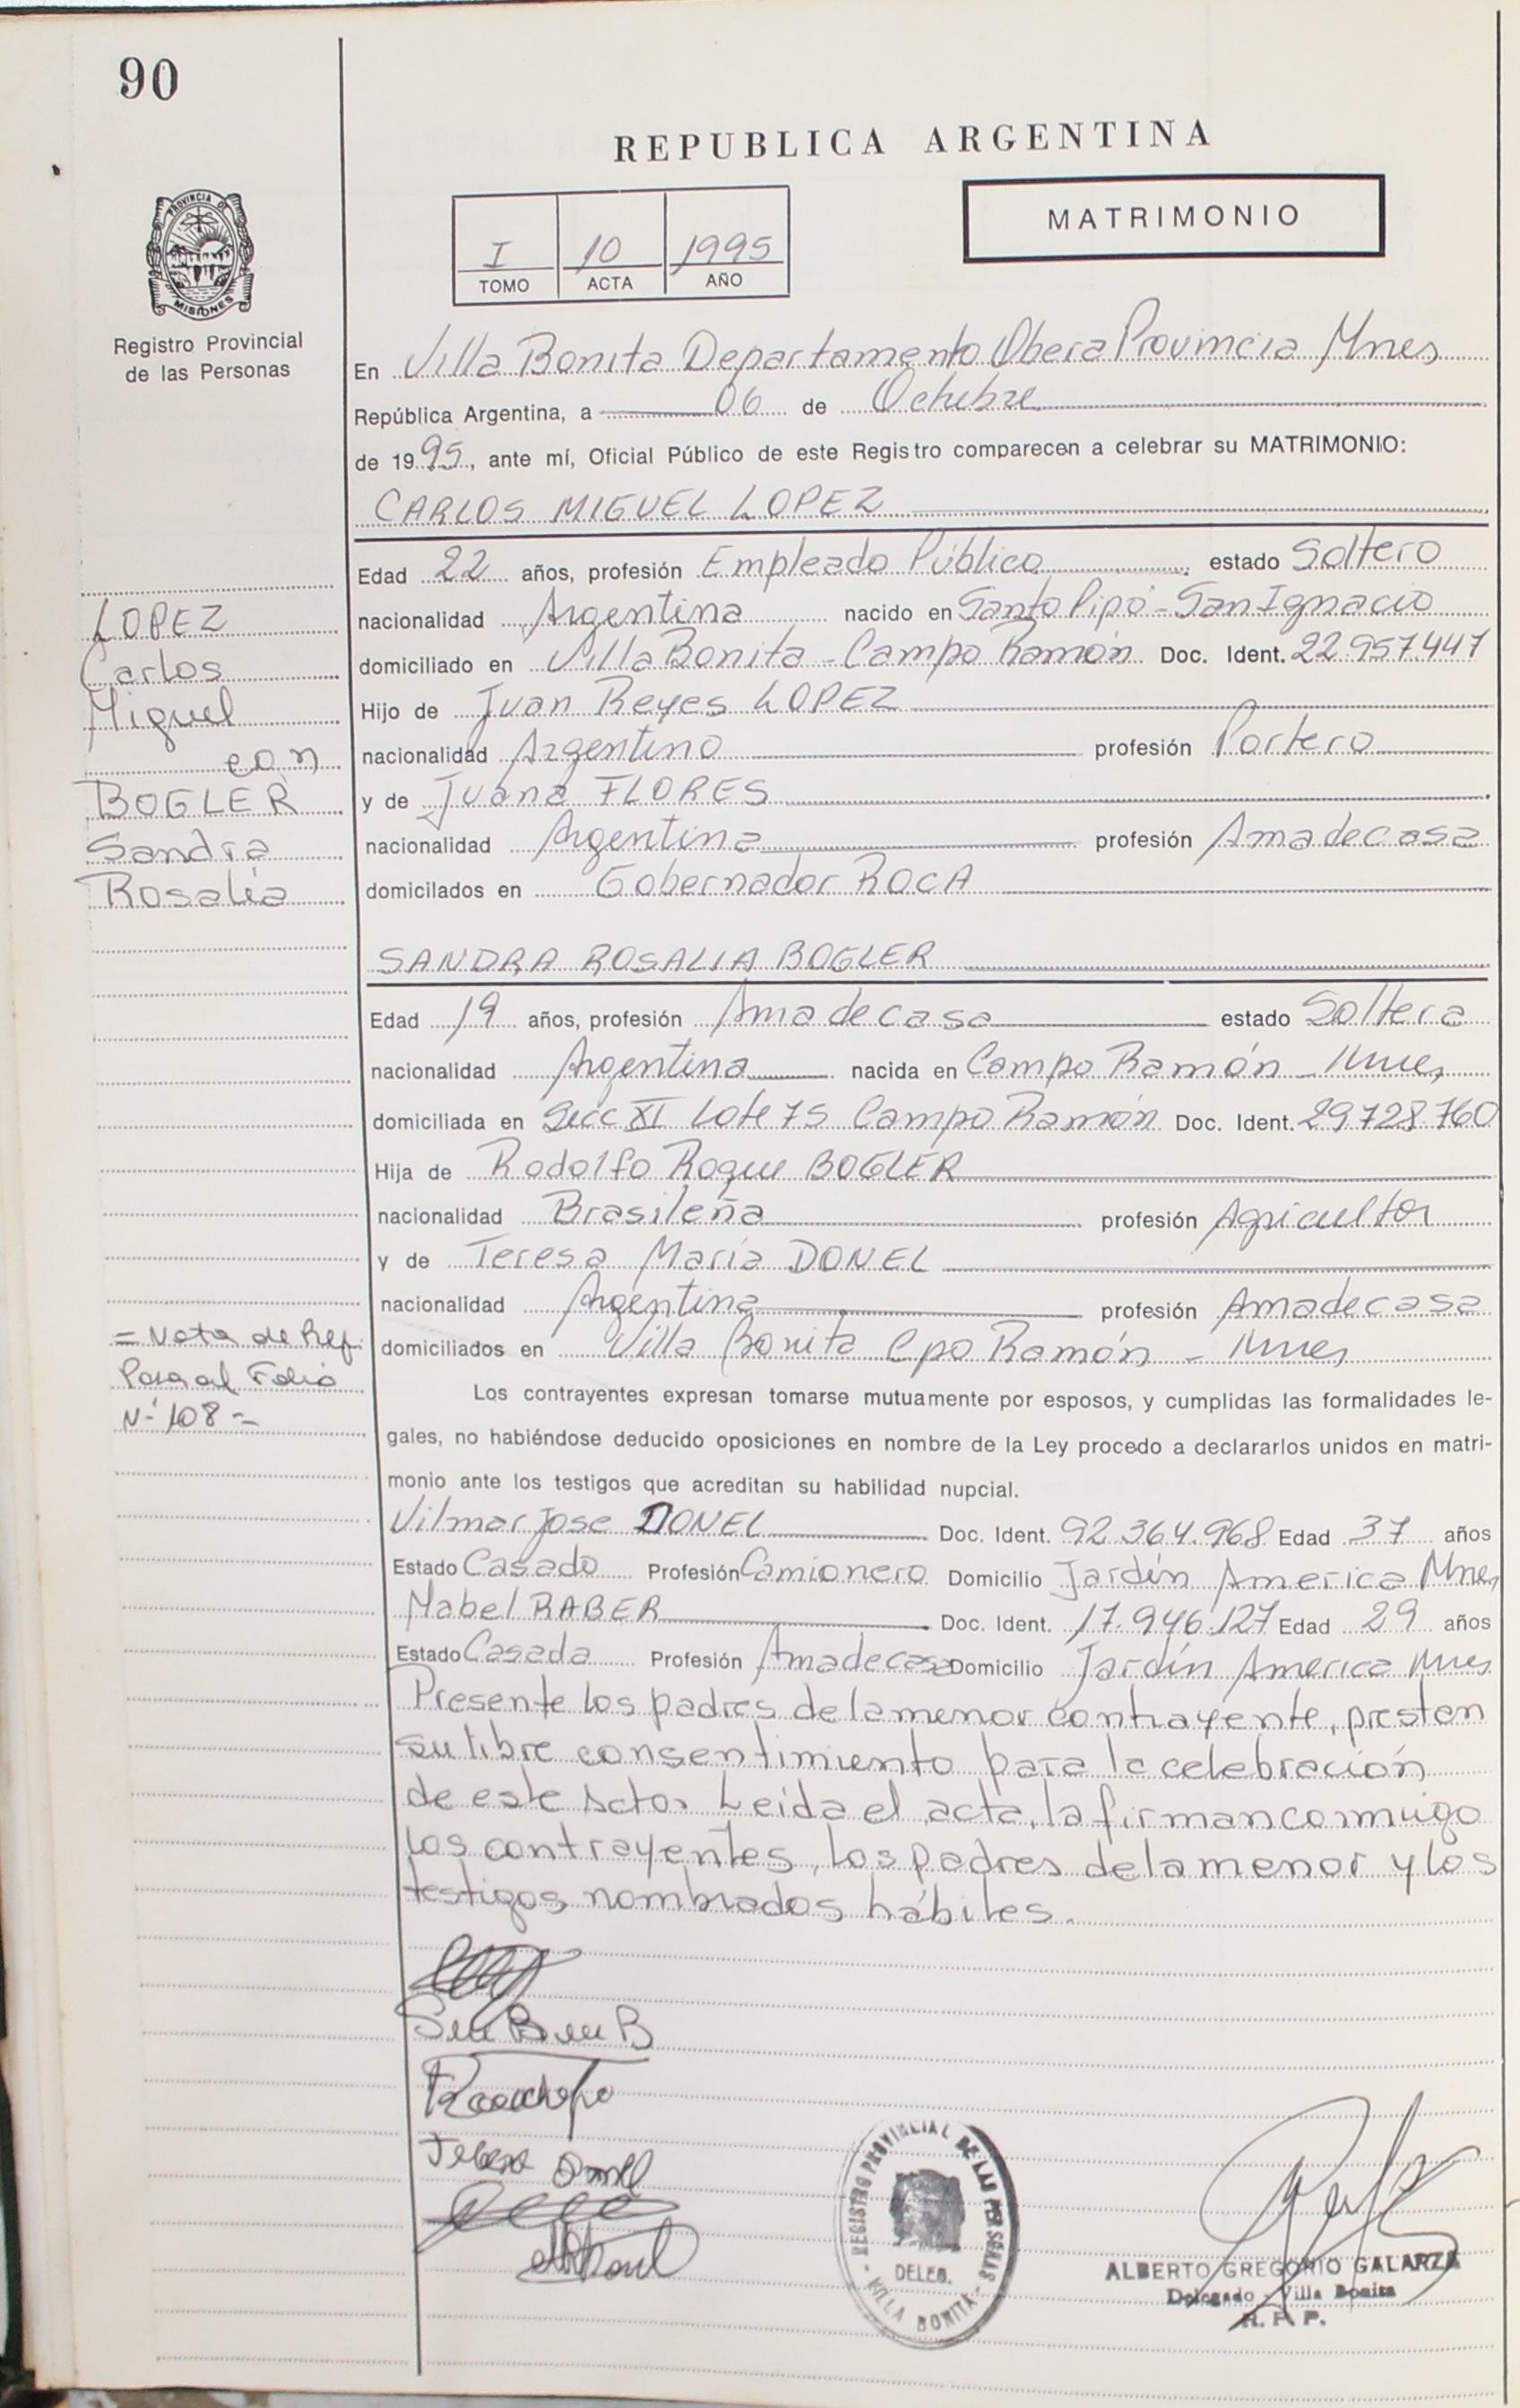 90
REPUBLICA ARGENTINA
MATRIMONIO
I 10 1995
TOMO ACTA AÑO
PROVINCIA D
MISIONES
Registro Provincial
de las Personas
En Villa Bonita Departamento Obera Provincia Mnes
República Argentina, a 06 de Octubre
de 1995, ante mí, Oficial Público de este Registro comparecen a celebrar su MATRIMONIO:
CARLOS MIGUEL LOPEZ
Edad 22 años, profesión Empleado Público estado Soltero
nacionalidad Argentina nacido en Santo Pipó - San Ignacio
domiciliado en Villa Bonita - Campo Ramón Doc. Ident. 22.957.447
Hijo de Juan Reyes LOPEZ
nacionalidad Argentino profesión Portero
y de Juana FLORES
nacionalidad Argentina profesión Amadecasa
domicilados en Gobernador ROCA
LOPEZ
Carlos
Miguel
con
BOGLER
Sandra
Rosalía
SANDRA ROSALIA BOGLER
Edad 19 años, profesión Amadecasa estado Soltera
nacionalidad Argentina nacida en Campo Ramón - Mnes
domiciliada en Secc XI Lote 75 Campo Ramón Doc. Ident. 29.728.760
Hija de Rodolfo Roque BOGLER
nacionalidad Brasileña profesión Agricultor
y de Teresa María DONEL
nacionalidad Argentina profesión Amadecasa
domiciliados en Villa Bonita Cpo Ramón - Mnes
= Nota de Ref.
Pasa al Folio
Nº 108 =
Los contrayentes expresan tomarse mutuamente por esposos, y cumplidas las formalidades le-
gales, no habiéndose deducido oposiciones en nombre de la Ley procedo a declararlos unidos en matri-
monio ante los testigos que acreditan su habilidad nupcial.
Vilmar Jose DONEL Doc. Ident. 92.364.968 Edad 37 años
Estado Casado Profesión Camionero Domicilio Jardín America Mnes
Mabel RABER Doc. Ident. 17.946.127 Edad 29 años
Estado Casada Profesión Amadecasa Domicilio Jardín America Mnes
Presente los padres de la menor contrayente, prestan
su libre consentimiento para la celebración
de este Acto. Leida el acta, la firman conmigo
los contrayentes, los padres de la menor y los
testigos nombrados hábiles.
Teresa Donel
REGISTRO PROVINCIAL DE LAS PERSONAS
DELEG.
- VILLA BONITA -
ALBERTO GREGORIO GALARZA
Delegado - Villa Bonita
R. P. P.